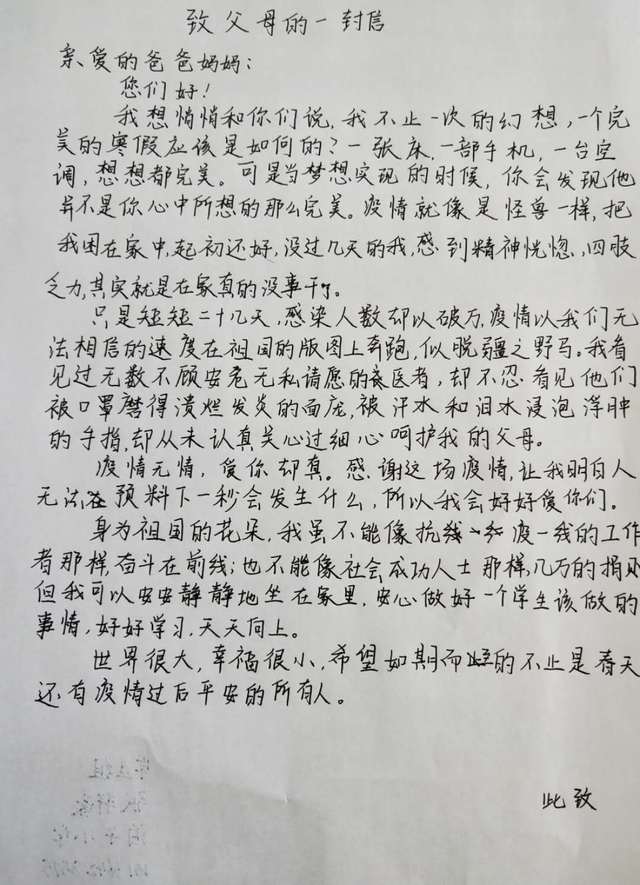 致父母的一封信
亲爱的爸爸妈妈：
您们好！
我想悄悄和你们说，我不止一次的幻想，一个完
美的寒假应该是如何的？一张床，一部手机，一台空
调，想想都完美。可是当梦想实现的时候，你会发现他
并不是你心中所想的那么完美。疫情就像是怪兽一样，把
我困在家中，起初还好，没过几天的我，感到精神恍惚，四肢
乏力，其实就是在家真的没事干了。
只是短短二十几天，感染人数却以破万，疫情以我们无
法相信的速度在祖国的版图上奔跑，似脱疆之野马。我看
见过无数不顾安危无私请愿的医者，却不忍看见他们
被口罩磨得溃烂发炎的面庞，被汗水和泪水浸泡浮肿
的手指，却从未认真关心过细心呵护我的父母。
疫情无情，爱你却真。感谢这场疫情，让我明白人
无法在预料下一秒会发生什么，所以我会好好爱你们。
身为祖国的花朵，我虽不能像抗疫一线的工作
者那样，奋斗在前线；也不能像社会成功人士那样，几万的捐
但我可以安安静静地坐在家里，安心做好一个学生该做的
事情，好好学习，天天向上。
世界很大，幸福很小，希望如期而至的不止是春天
还有疫情过后平安的所有人。
此致